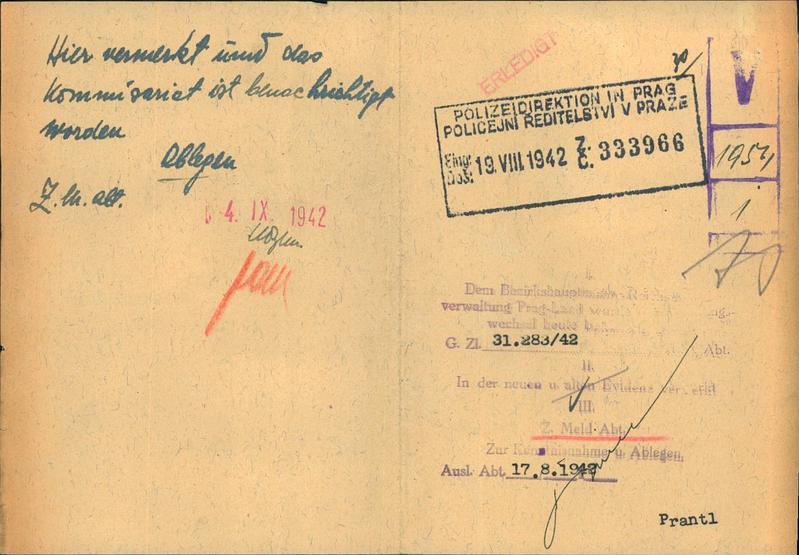 Hier vermerkt und das
Kommisariat ist benachrichtigt
worden
Ablegen
Z. M. alt.
4. IX. 1942
ERLEDIGT
POLIZEIDIREKTION IN PRAG
POLICEJNÍ ŘEDITELSTVÍ V PRAZE
Eing.
Doš. 19. VIII. 1942 Z. Č. 333966
V
1954
1
I.
Dem Bezirkshauptmann
verwaltung Prag-Land wurde
wechsel heute
G. Zl. 31.283/42 Abt.
II.
In der neuen u. alten Evidenz vermerkt
III.
Z. Meld Abt.
Zur Kenntnisnahme u. Ablegen.
Ausl. Abt. 17.8.1942
Prantl